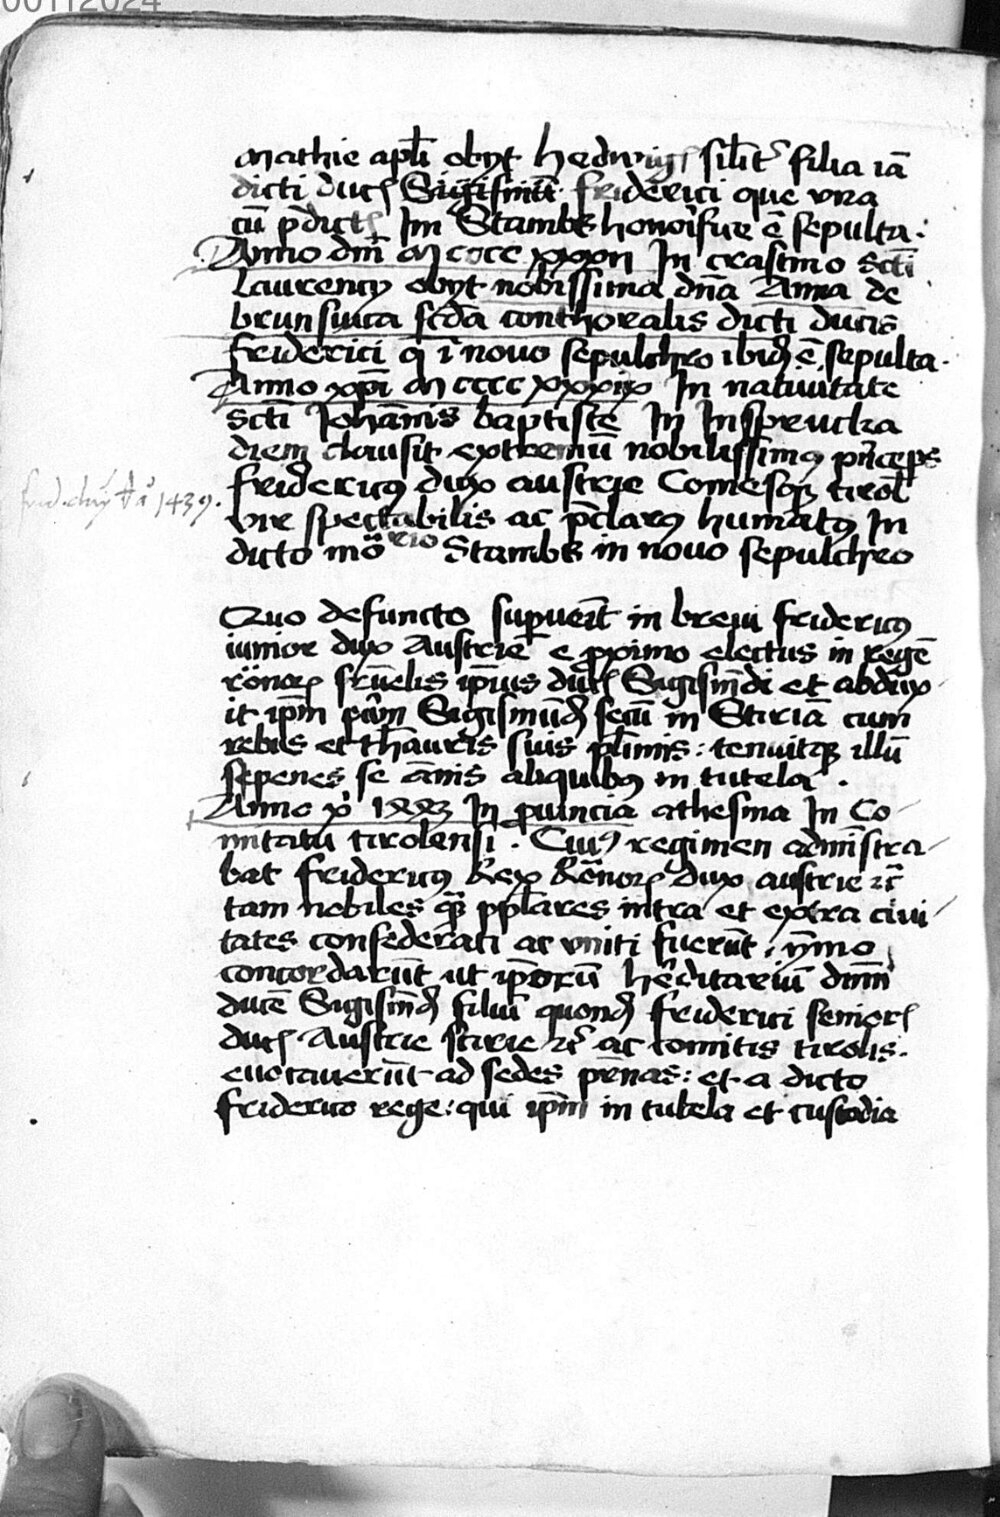 Mathie apl̄i obyt hedwigꝭ sil̄itͬ filia iā
dicti ducꝭ Sigismūdi friderici que vna
cū p̄dictꝭ Im Stambs honorifice ē sepulta.
Anno dm̄ M cccc xxxii In crastino Scti
Laurency obyt nobissima dn̄a Anna de
brunsuica scd̄a conthoralis dicti ducis
friderici q̄ ī nouo sepulchro ibidꝫ ē sepulta.
Anno xp̄i M cccc xxxix In natiuitate
Scti Johānis baptiste In Insprucka
diem clausit extremū nobilissimꝰ pn̄ceps
fridericꝰ dux austrie Comesqꝫ tirol̄
vir spectabilis ac p̄clarꝰ humatꝰ In
dicto mōrio Stambs in nouo sepulchro
frid. 1439.
Quo defuncto supuēit in breui fridericꝰ
iunior dux Austrie e proximo electus in regē
rōnorꝭ fruēlis ip̄ius ducꝭ Sigismn̄di et abdux
it ip̄m Sigismūdꝫ secū in Stiriā cum
rebus et thauris suis pl̄imis: tenuitqꝫ illū
sepenes se ānis aliquibꝰ in tutela.
Anno xͥ 1443 In prouincia athesina In Co
mitatu tirolensi. Cuiꝰ regimen admīstra
bat fridericꝰ Rex Rōnorꝭ dux austrie ꝛcͣ
tam nobiles qͣꝫ ppl̄ares intra et extra ciui
tates confederati ac vniti fuerūt, ymmo
concordarūt ut ip̄orū hēditariū dnm̄
ducē Sigismdꝫ filiū quondꝫ friderici seniorꝭ
ducꝭ Austrie stirie ꝛcͣ ac comitis tirolis.
euocauerūt ad sedes pr̄nas: et a dicto
friderico rege: qui ip̄m in tutela et custodia